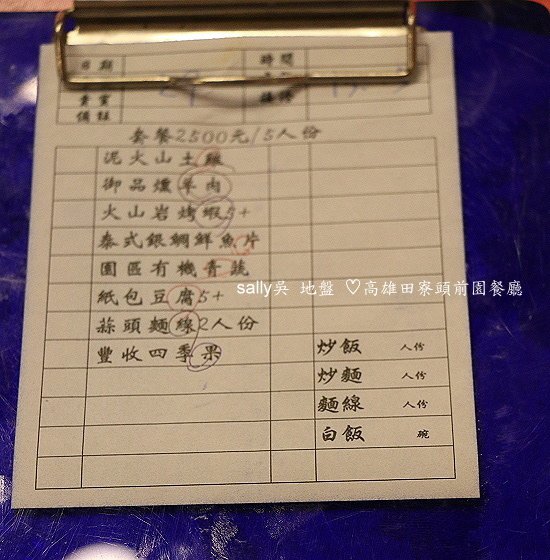 日期 時間
貴賓
備註
套餐2500元/5人份
泥火山土雞
御品燻羊肉
火山岩烤蝦5+
泰式銀綢鮮魚片
園區有機青蔬
sally吳 地盤 ♡高雄田寮頭前園餐廳
紙包豆腐5+
蒜頭麵線2人份
豐收四季果
炒飯 人份
炒麵 人份
麵線 人份
白飯 碗